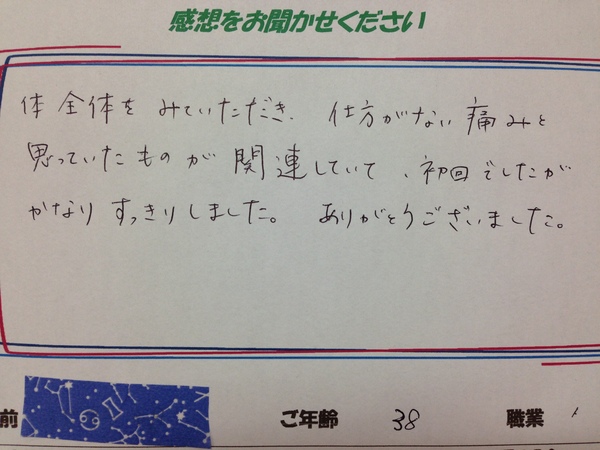 感想をお聞かせください
体全体を みていただき、仕方がない痛みと
思っていたものが関連していて、初回でしたが
かなりすっきりしました。 ありがとうございました。
前 ご年齢 38 職業